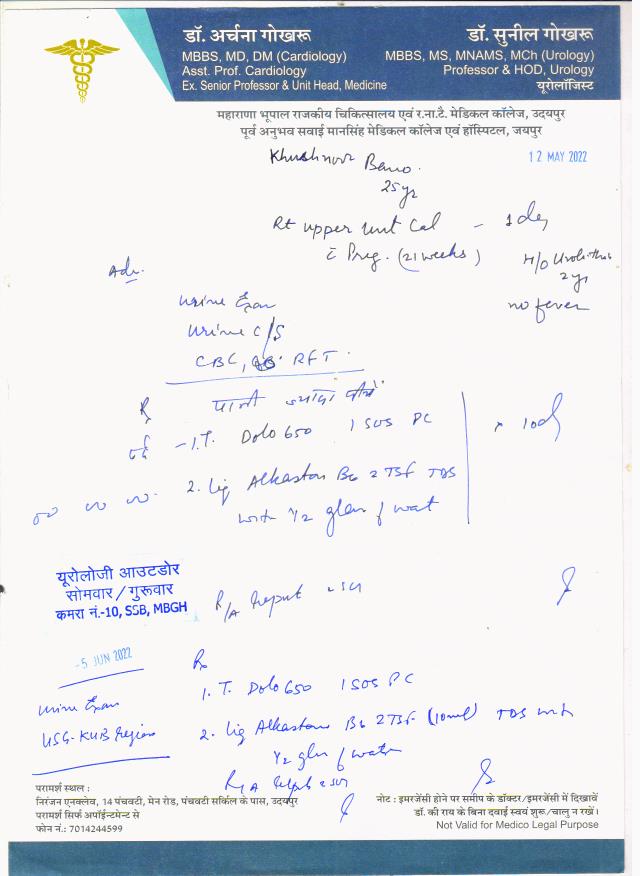 डॉ. अर्चना गोखरू
MBBS, MD, DM (Cardiology)
Asst. Prof. Cardiology
Ex. Senior Professor & Unit Head, Medicine
डॉ. सुनील गोखरू
MBBS, MS, MNAMS, MCh (Urology)
Professor & HOD, Urology
यूरोलॉजिस्ट
महाराणा भूपाल राजकीय चिकित्सालय एवं र.ना.टै. मेडिकल कॉलेज, उदयपुर
पूर्व अनुभव सवाई मानसिंह मेडिकल कॉलेज एवं हॉस्पिटल, जयपुर
12 MAY 2022
Khushnoor Bano.
25 yr
Rt upper Cal - 1 day
c̄ Preg. (21 weeks)
H/O
2 yr
no fever
Adv.
Urine Exam
Urine C/S
CBC, RFT.
Rx
पानी ज्यादा पीयें
दर्द - 1. T. Dolo 650 1 SOS PC
2. Liq Alkaston B6 2 TSF TDS
with 1/2 glass of wat
x 10d
यूरोलॉजी आउटडोर
सोमवार / गुरूवार
कमरा नं.-10, SSB, MBGH
R/A report
-5 JUN 2022
Urine Exam
USG-KUB Region
Rx
1. T. Dolo 650 1 SOS PC
2. Liq Alkaston B6 2 TSF (10ml) TDS with
1/2 glass of water
R/A report
परामर्श स्थल :
निरंजन एनक्लेव, 14 पंचवटी, मेन रोड, पंचवटी सर्किल के पास, उदयपुर
परामर्श सिर्फ अपॉईन्टमेन्ट से
फोन नं.: 7014244599
नोट : इमरजेंसी होने पर समीप के डॉक्टर/इमरजेंसी में दिखावें
डॉ. की राय के बिना दवाई स्वयं शुरू/चालु न रखें।
Not Valid for Medico Legal Purpose